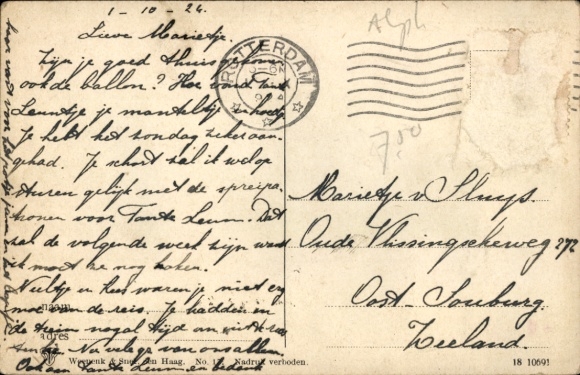 1-10-24
Lieve Marietje.
Zijn je goed thuisgekomen
ook de ballon? Hoe vond Tante
Leuntje je manteltje en hoedje
Je hebt het zondag zeker aan-
gehad. Je schort zal ik wel op
sturen gelijk met de spreipa-
tronen voor Tante Leun. Dat
zal de volgende week zijn want
ik moet ze nog koken.
Neeltje en Kees waren je niet erg
moe van de reis. Je hadden in
de trein nogal tijd om uit te rus-
Nu velege van ons allen.
Ook aan Tante Leun en bedank
naam
adres
Weenenk & Snel, Den Haag. No. Nadruk verboden.
ROTTERDAM
Alph
7.50
Marietje v Sluys.
Oude Vlissingscheweg 272
Oost-Souburg.
Zeeland.
18 10691